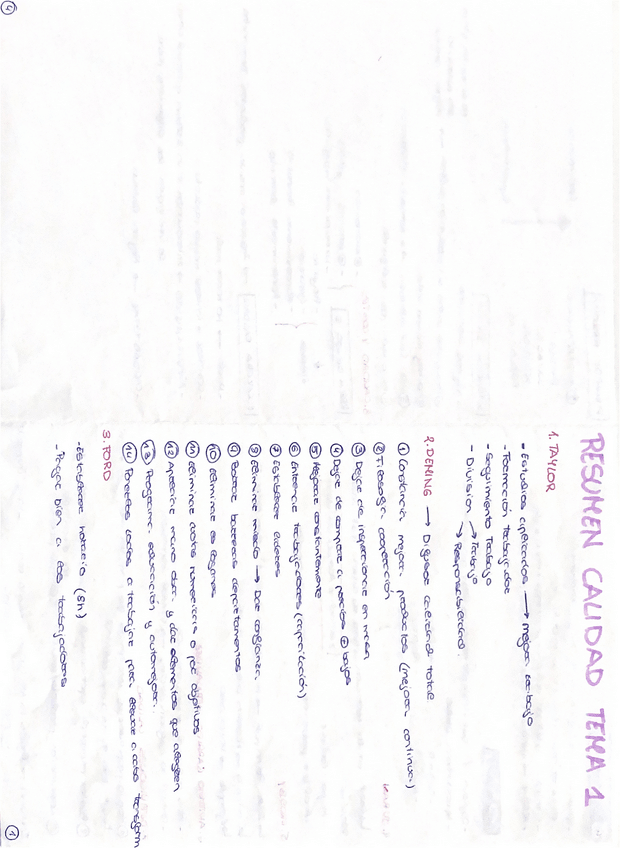 RESUMEN CALIDAD TEMA 1
1. TAYLOR
- Estudios científicos → mejorar trabajo
- Formación trabajador
- Seguimiento trabajo
- División → Trabajo
→ Responsabilidad.
2. DEMING → Dirigirse calidad total
① Constancia mejorar productos (mejora continua)
② Filosofía cooperación
③ Dejar de inspeccionar en masa
④ Dejar de comprar a precios bajos
⑤ Mejorar constantemente
⑥ Entrenar trabajadores (capacitación)
⑦ Establecer líderes
⑧ Eliminar miedo → Dar confianza.
⑨ Borrar barreras departamentos
⑩ Eliminar eslóganes
⑪ Eliminar cuotas numéricas o por objetivos
⑫ mano obra. y dar elementos que
⑬ Programa educación y automejora.
⑭ Ponerlos todos a trabajar para llevar a cabo transform
3. FORD
- Establecer horario (8h)
- Pagar bien a los trabajadores
4
1